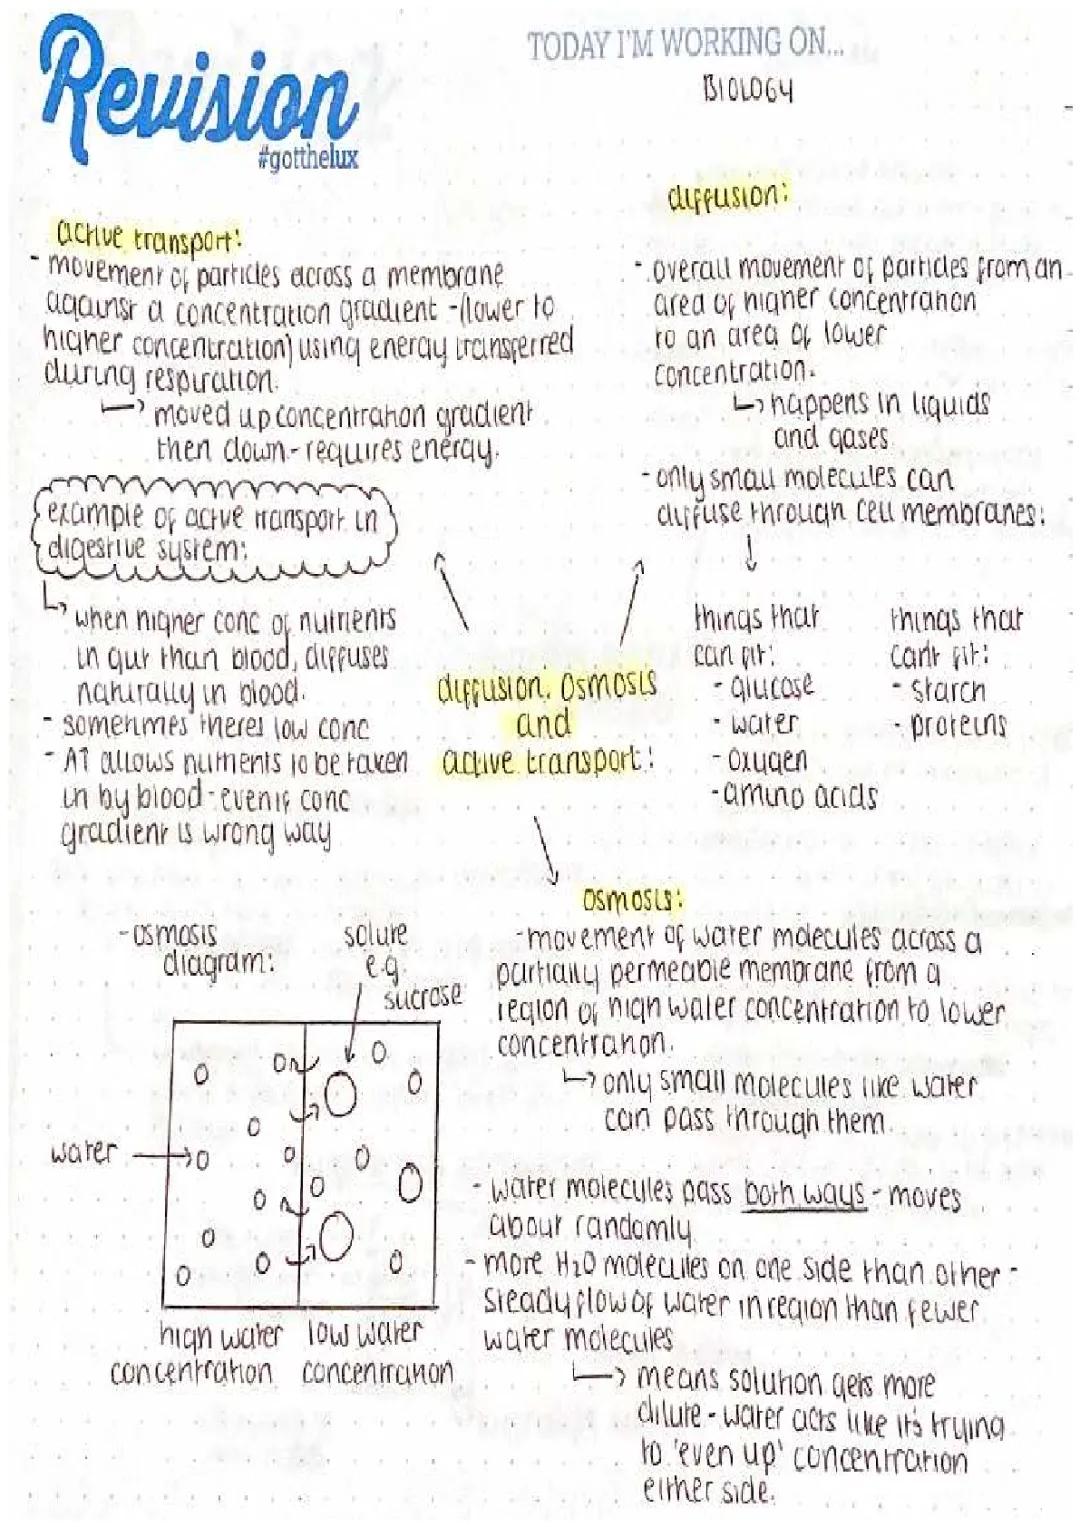 Revision
#gotthelux
TODAY I'M WORKING ON...
BIOLOGY
active transport:
- movement of particles across a membrane
against a concentration gradient - (lower to
higher concentration) using energy transferred
during respiration.
↳ moved up concentration gradient
then down - requires energy.
example of active transport in
digestive system:
↳ when higher conc of nutrients
in gut than blood, diffuses
naturally in blood.
- sometimes theres low conc
- AT allows nutrients to be taken
in by blood - even if conc
gradient is wrong way
diffusion:
- overall movement of particles from an
area of higher concentration
to an area of lower
concentration.
↳ happens in liquids
and gases
- only small molecules can
diffuse through cell membranes:
things that
can fit:
- glucose
- water
- oxygen
- amino acids
things that
can't fit:
- starch
- proteins
diffusion, osmosis
and
active transport:
osmosis:
- movement of water molecules across a
partially permeable membrane from a
region of high water concentration to lower
concentration.
↳ only small molecules like water
can pass through them.
- water molecules pass both ways - moves
about randomly
- more H₂O molecules on one side than other -
steady flow of water in region than fewer
water molecules
↳ means solution gets more
dilute - water acts like it's trying
to 'even up' concentration
either side.
- osmosis
diagram:
solute
e.g.
sucrose
water
high water
concentration
low water
concentration